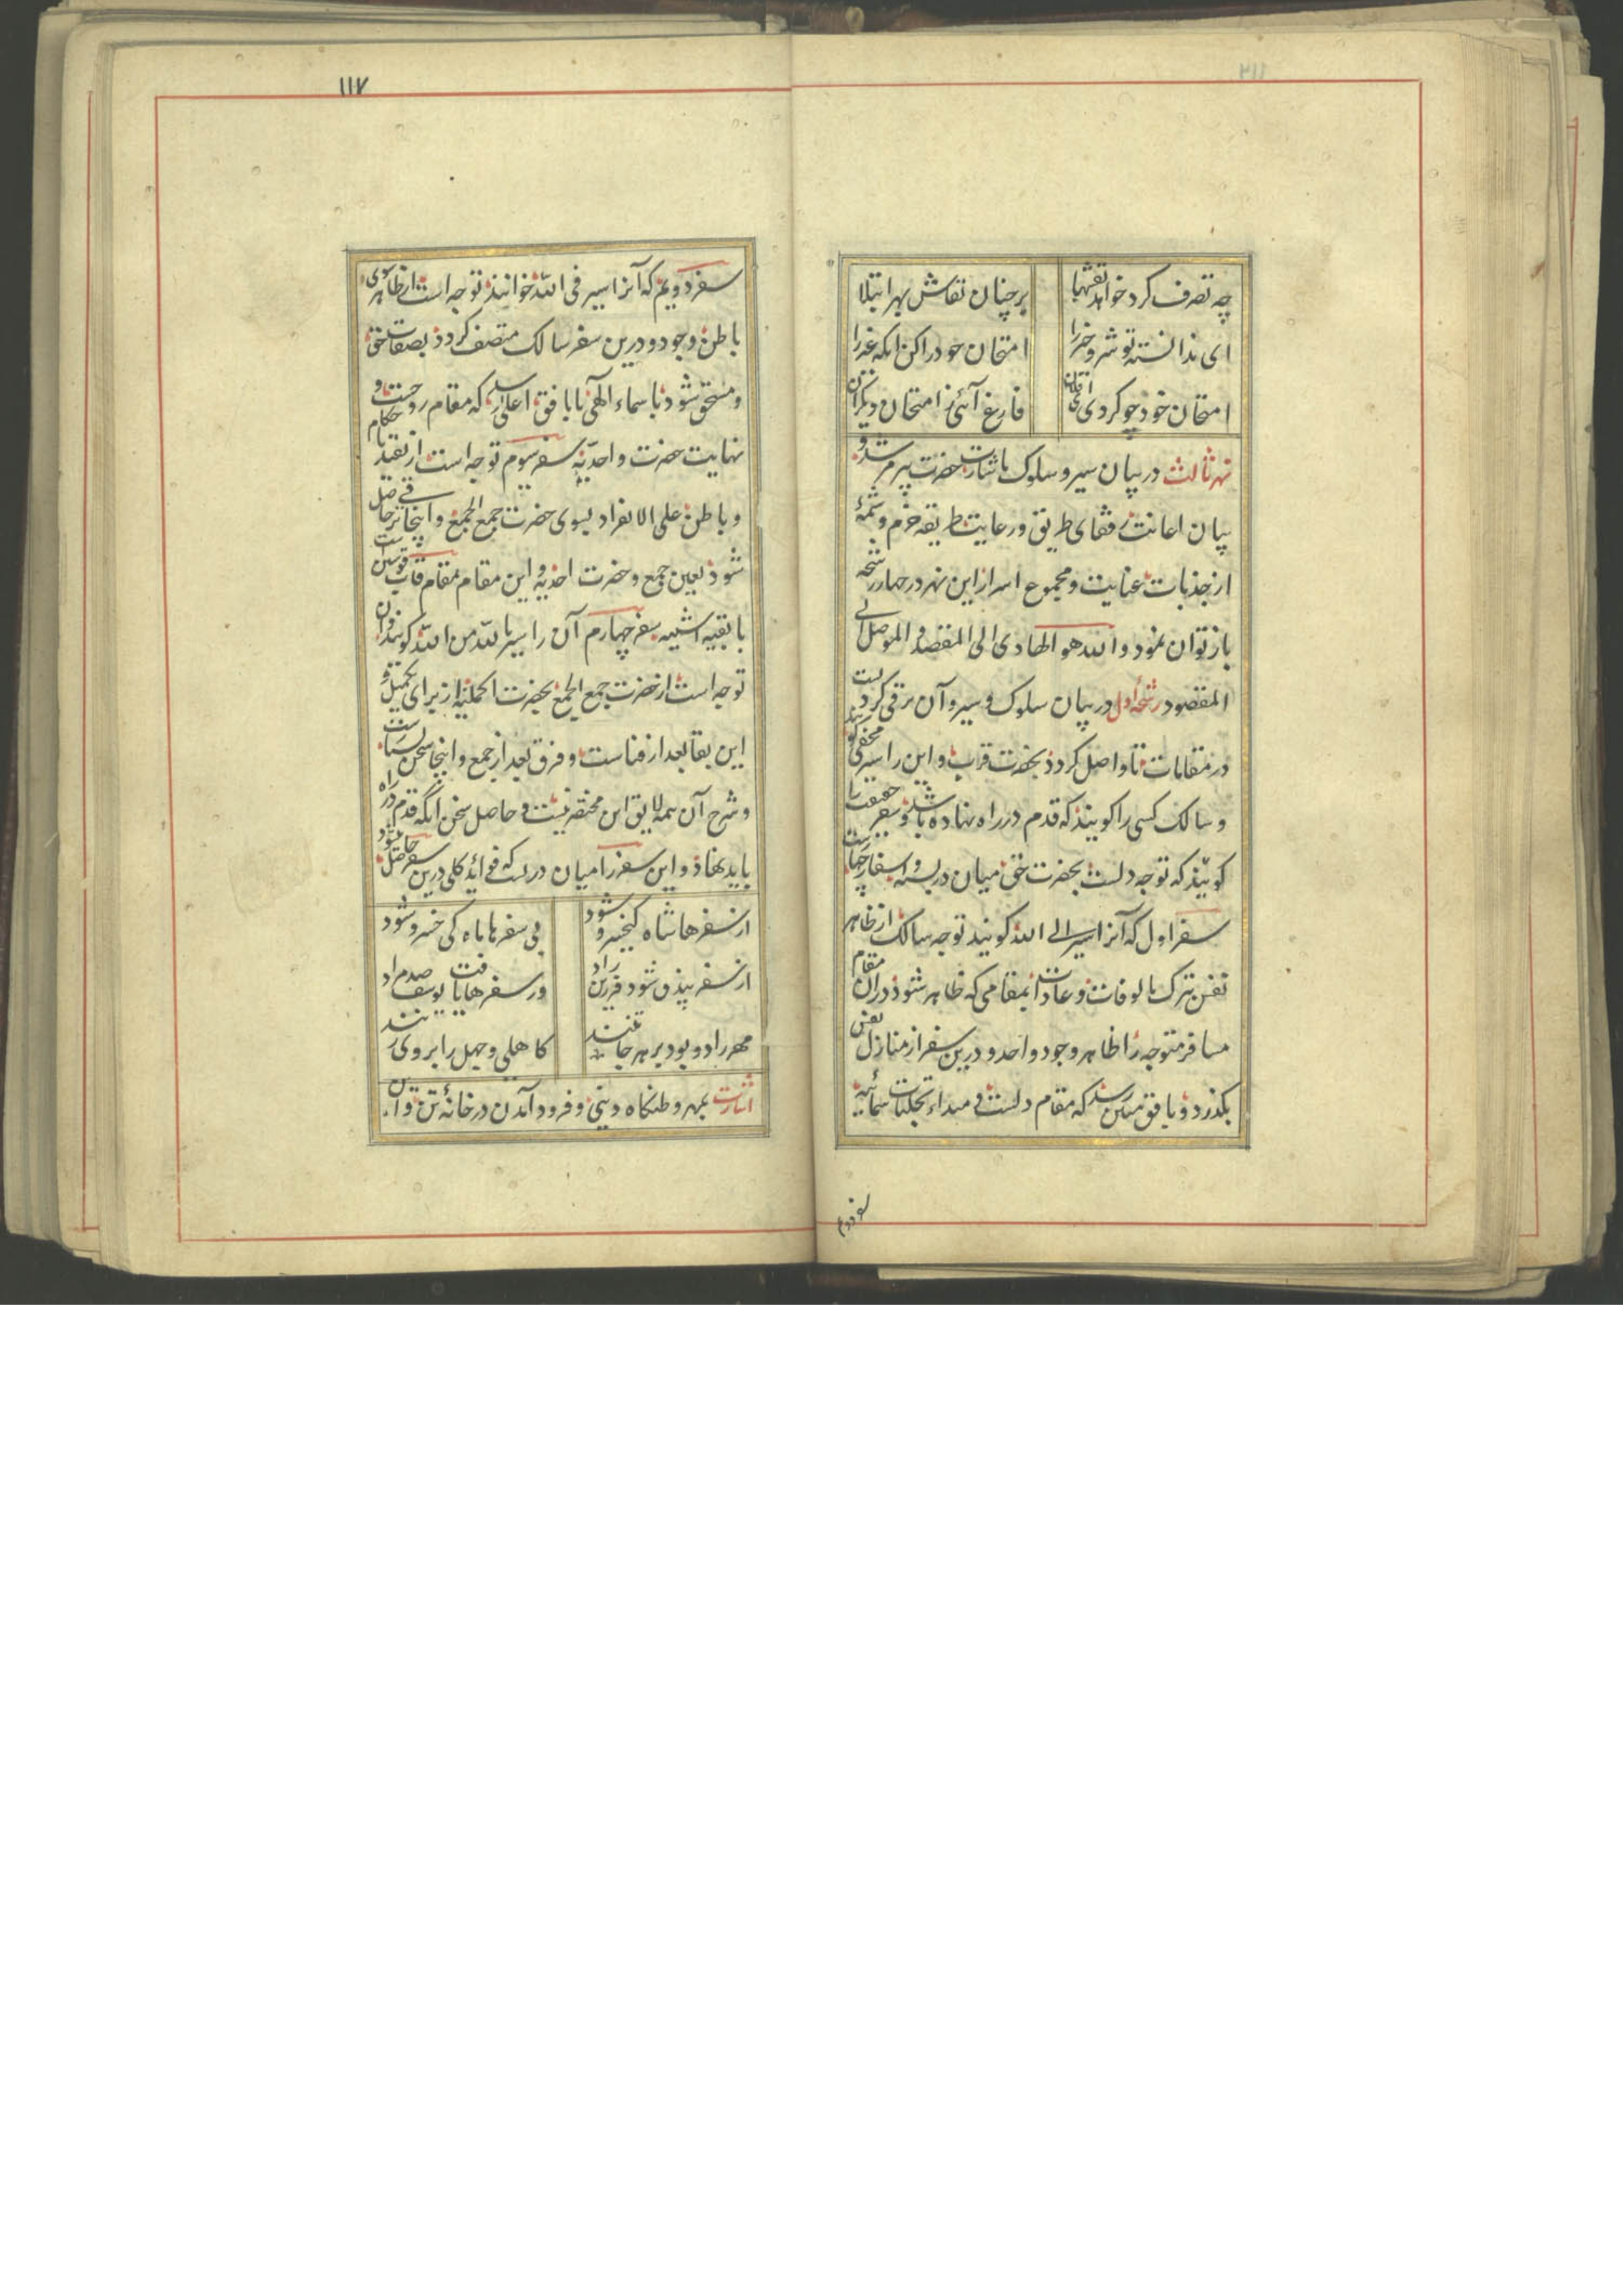 چه تصرف کرد خواهد نقشها بر چنان نقاش بهر ابتلا
ای ندانسته تو شر و خیر را امتحان خود را کن آنگه غیر را
امتحان خود چو کردی ای فلان فارغ آئی ز امتحان دیگران
نهر ثالث در بیان سیر و سلوک باشارت حضرت پیر مرشد و
بیان اعانت رفقای طریق و رعایت طریقه حزم و شمهٔ
از جذبات عنایت و مجموع اسرار این نهر در چهار رشحه
باز توان نمود والله هو الهادی الی المقصد و الموصل الی
المقصود رشحهٔ اول در بیان سلوک و سیر و آن ترقی کردنست
در مقامات تا واصل گردد بحضرت قرب و این را سیر مخفی گویند
و سالک کسی را گویند که قدم در راه نهاده باشد و سفر حقیقت را
گویند که توجه دلست بحضرت حق میان در بسته و اسفار چهارست
سفر اول که آنرا سیر الی الله گویند توجه سالک از ظاهر
نفس بترک مالوفات و عادات بمقامی که ظاهر شود در آن مقام
مسافر متوجه را ظاهر وجود واحد و درین سفر از منازل نفس
بگذرد و بافق مبین رسد که مقام دلست و مبداء تجلیات اسمائیه
سفر دوم
۱۱۷
سفر دویم که آنرا سیر فی الله خوانند توجه است از ظاهر بسوی
باطن وجود و درین سفر سالک متصف گردد بصفات حق
و متحقق شود باسماء الهی تا بافق اعلی رسد که مقام روحست و
نهایت حضرت واحدیّه سفر سیوم توجه است از تقید باحکام
و باطن علی الانفراد بسوی حضرت جمع الجمع و اینجا ترقی حاصل
شود بعین جمع و حضرت احدیه و این مقام مقام قاب قوسین است
با بقیه اثنینیه سفر چهارم آن را سیر بالله من الله گویند و آن
توجه است از حضرت جمع الجمع بحضرت اکملیّه از برای تکمیل و
این بقا بعد از فناست و فرق بعد از جمع و اینجا سخن بسیار است
و شرح آن همه لایق این مختصر نیست و حاصل سخن آنکه قدم در راه
باید نهاد و این سفر را میان در بست که فوائد کلی درین سفر حاصل شود
از سفرها شاه کیخسرو شود بی سفرها ماه کی خسرو شود
از سفر بیذق شود فرزین راد وز سفرها یافت یوسف صد مراد
کاهلی و جهل را بر وی تنند
اشارت بمهر وطنگاه دینی و فرود آمدن در خانهٔ تن و